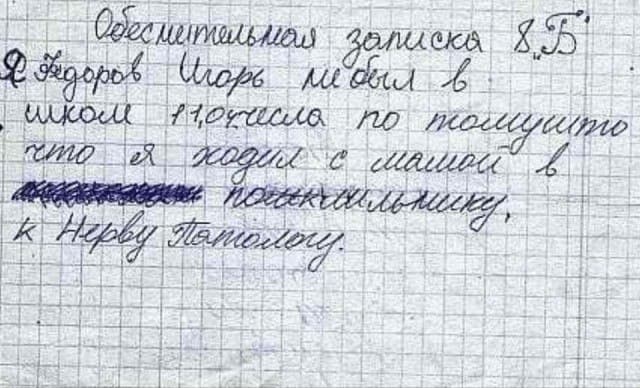 Обеснительная записка 8 „Б"
Я Фёдоров Игорь не был в
школе 11,04 числа по томушто
что я ходил с мамой в
поликчильнику,
к Нерву Патологу.